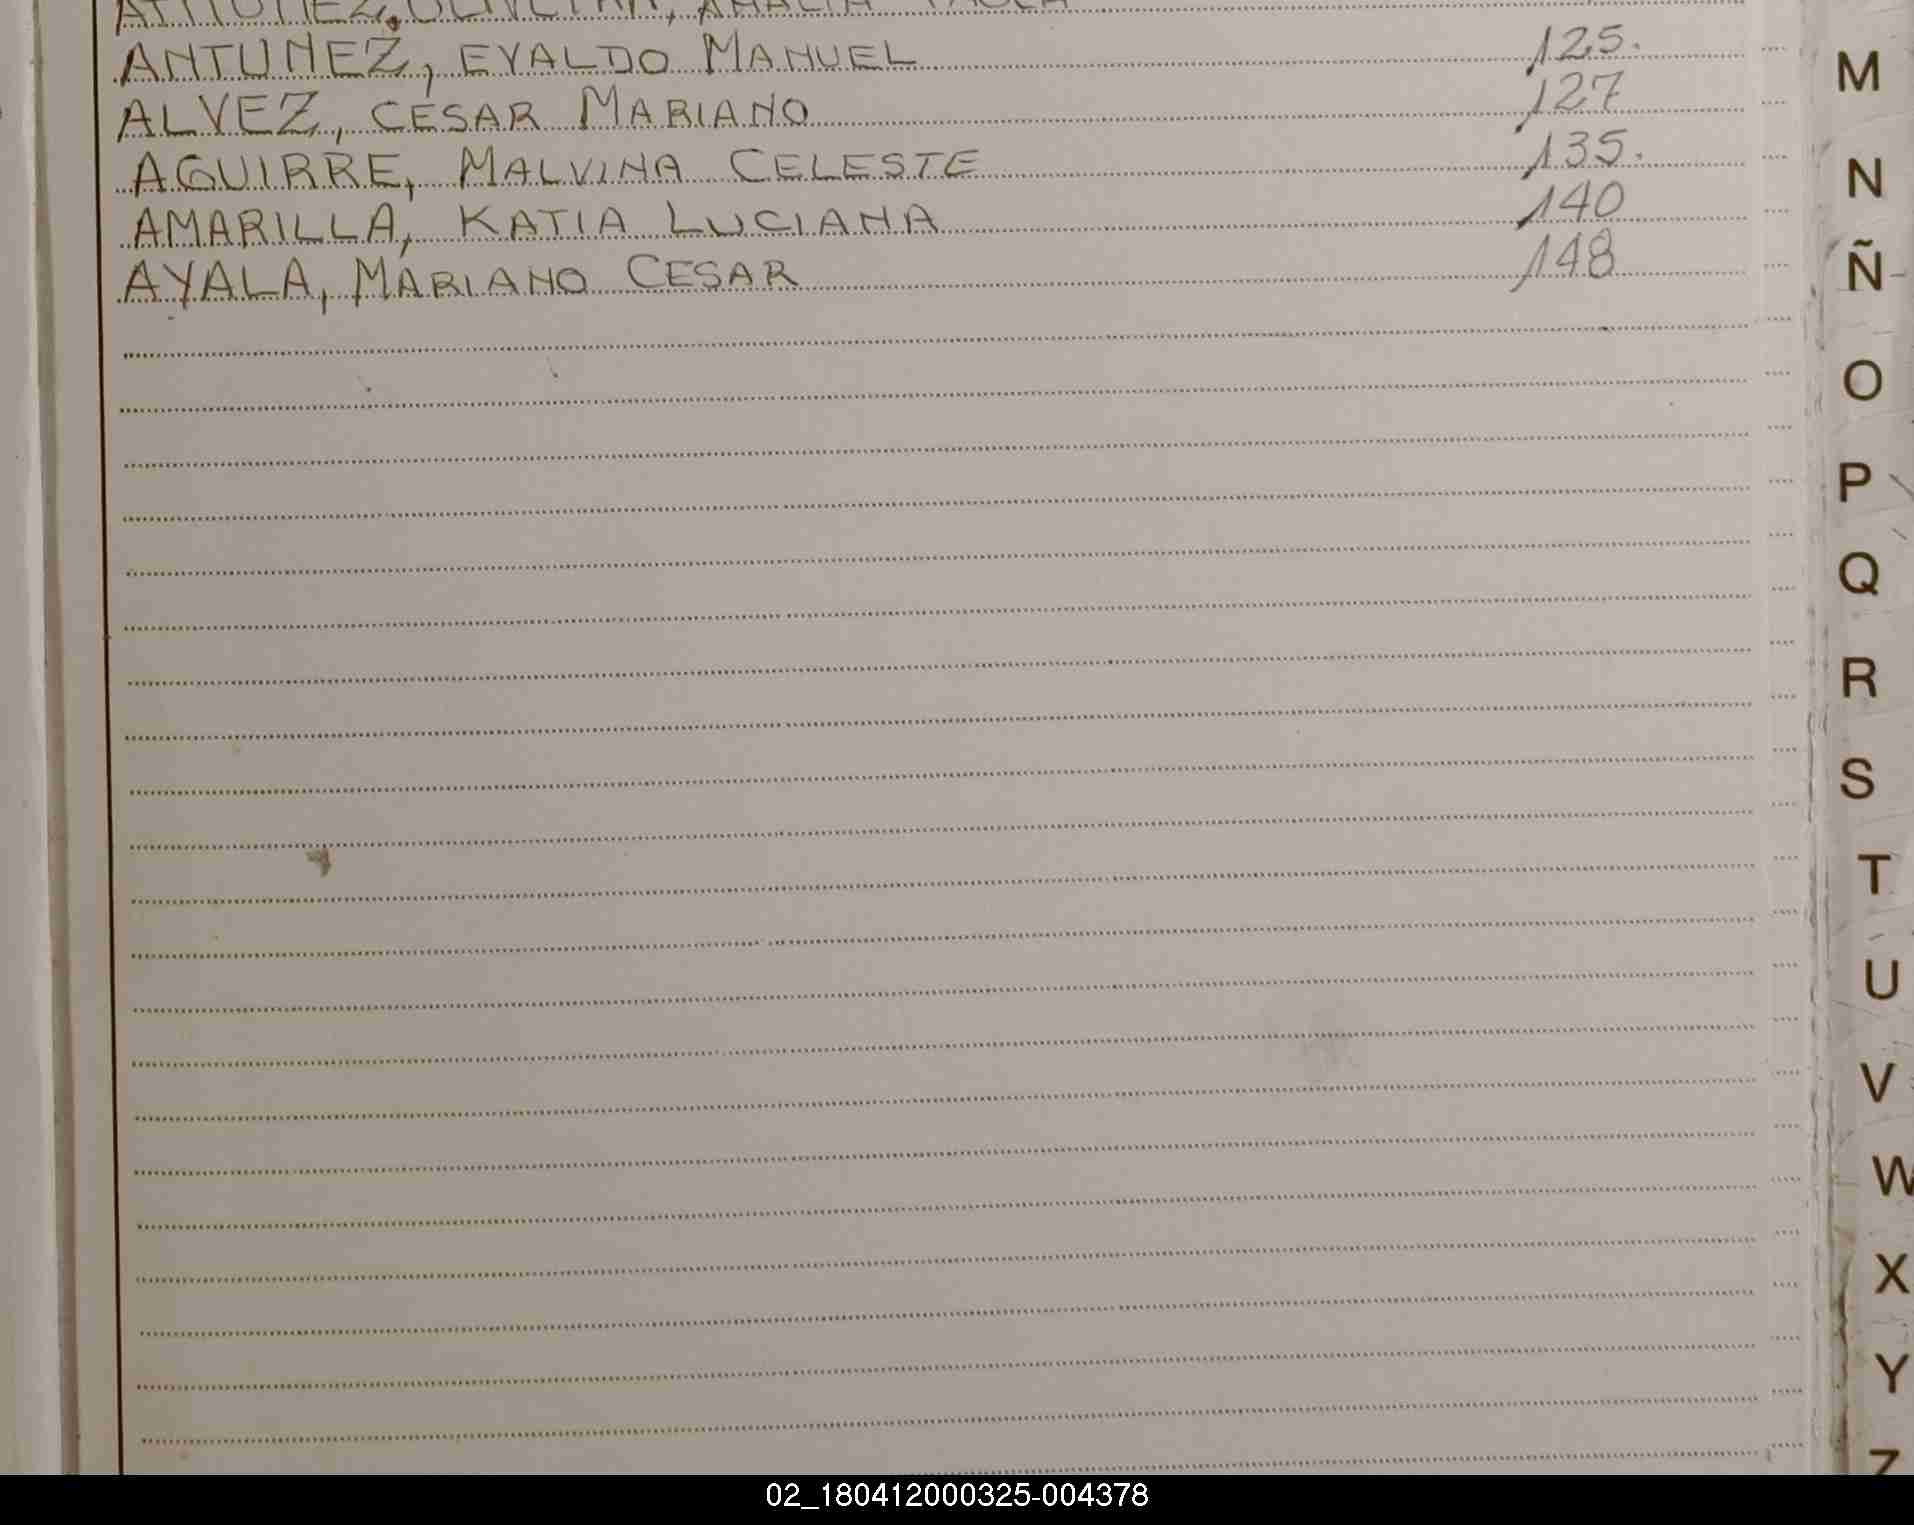 ANTUNEZ, EVALDO MANUEL 125.
ALVEZ, CESAR MARIANO 127
AGUIRRE, MALVINA CELESTE 135.
AMARILLA, KATIA LUCIANA 140
AYALA, MARIANO CESAR 148
M
N
Ñ
O
P
Q
R
S
T
U
V
W
X
Y
Z
02_180412000325-004378